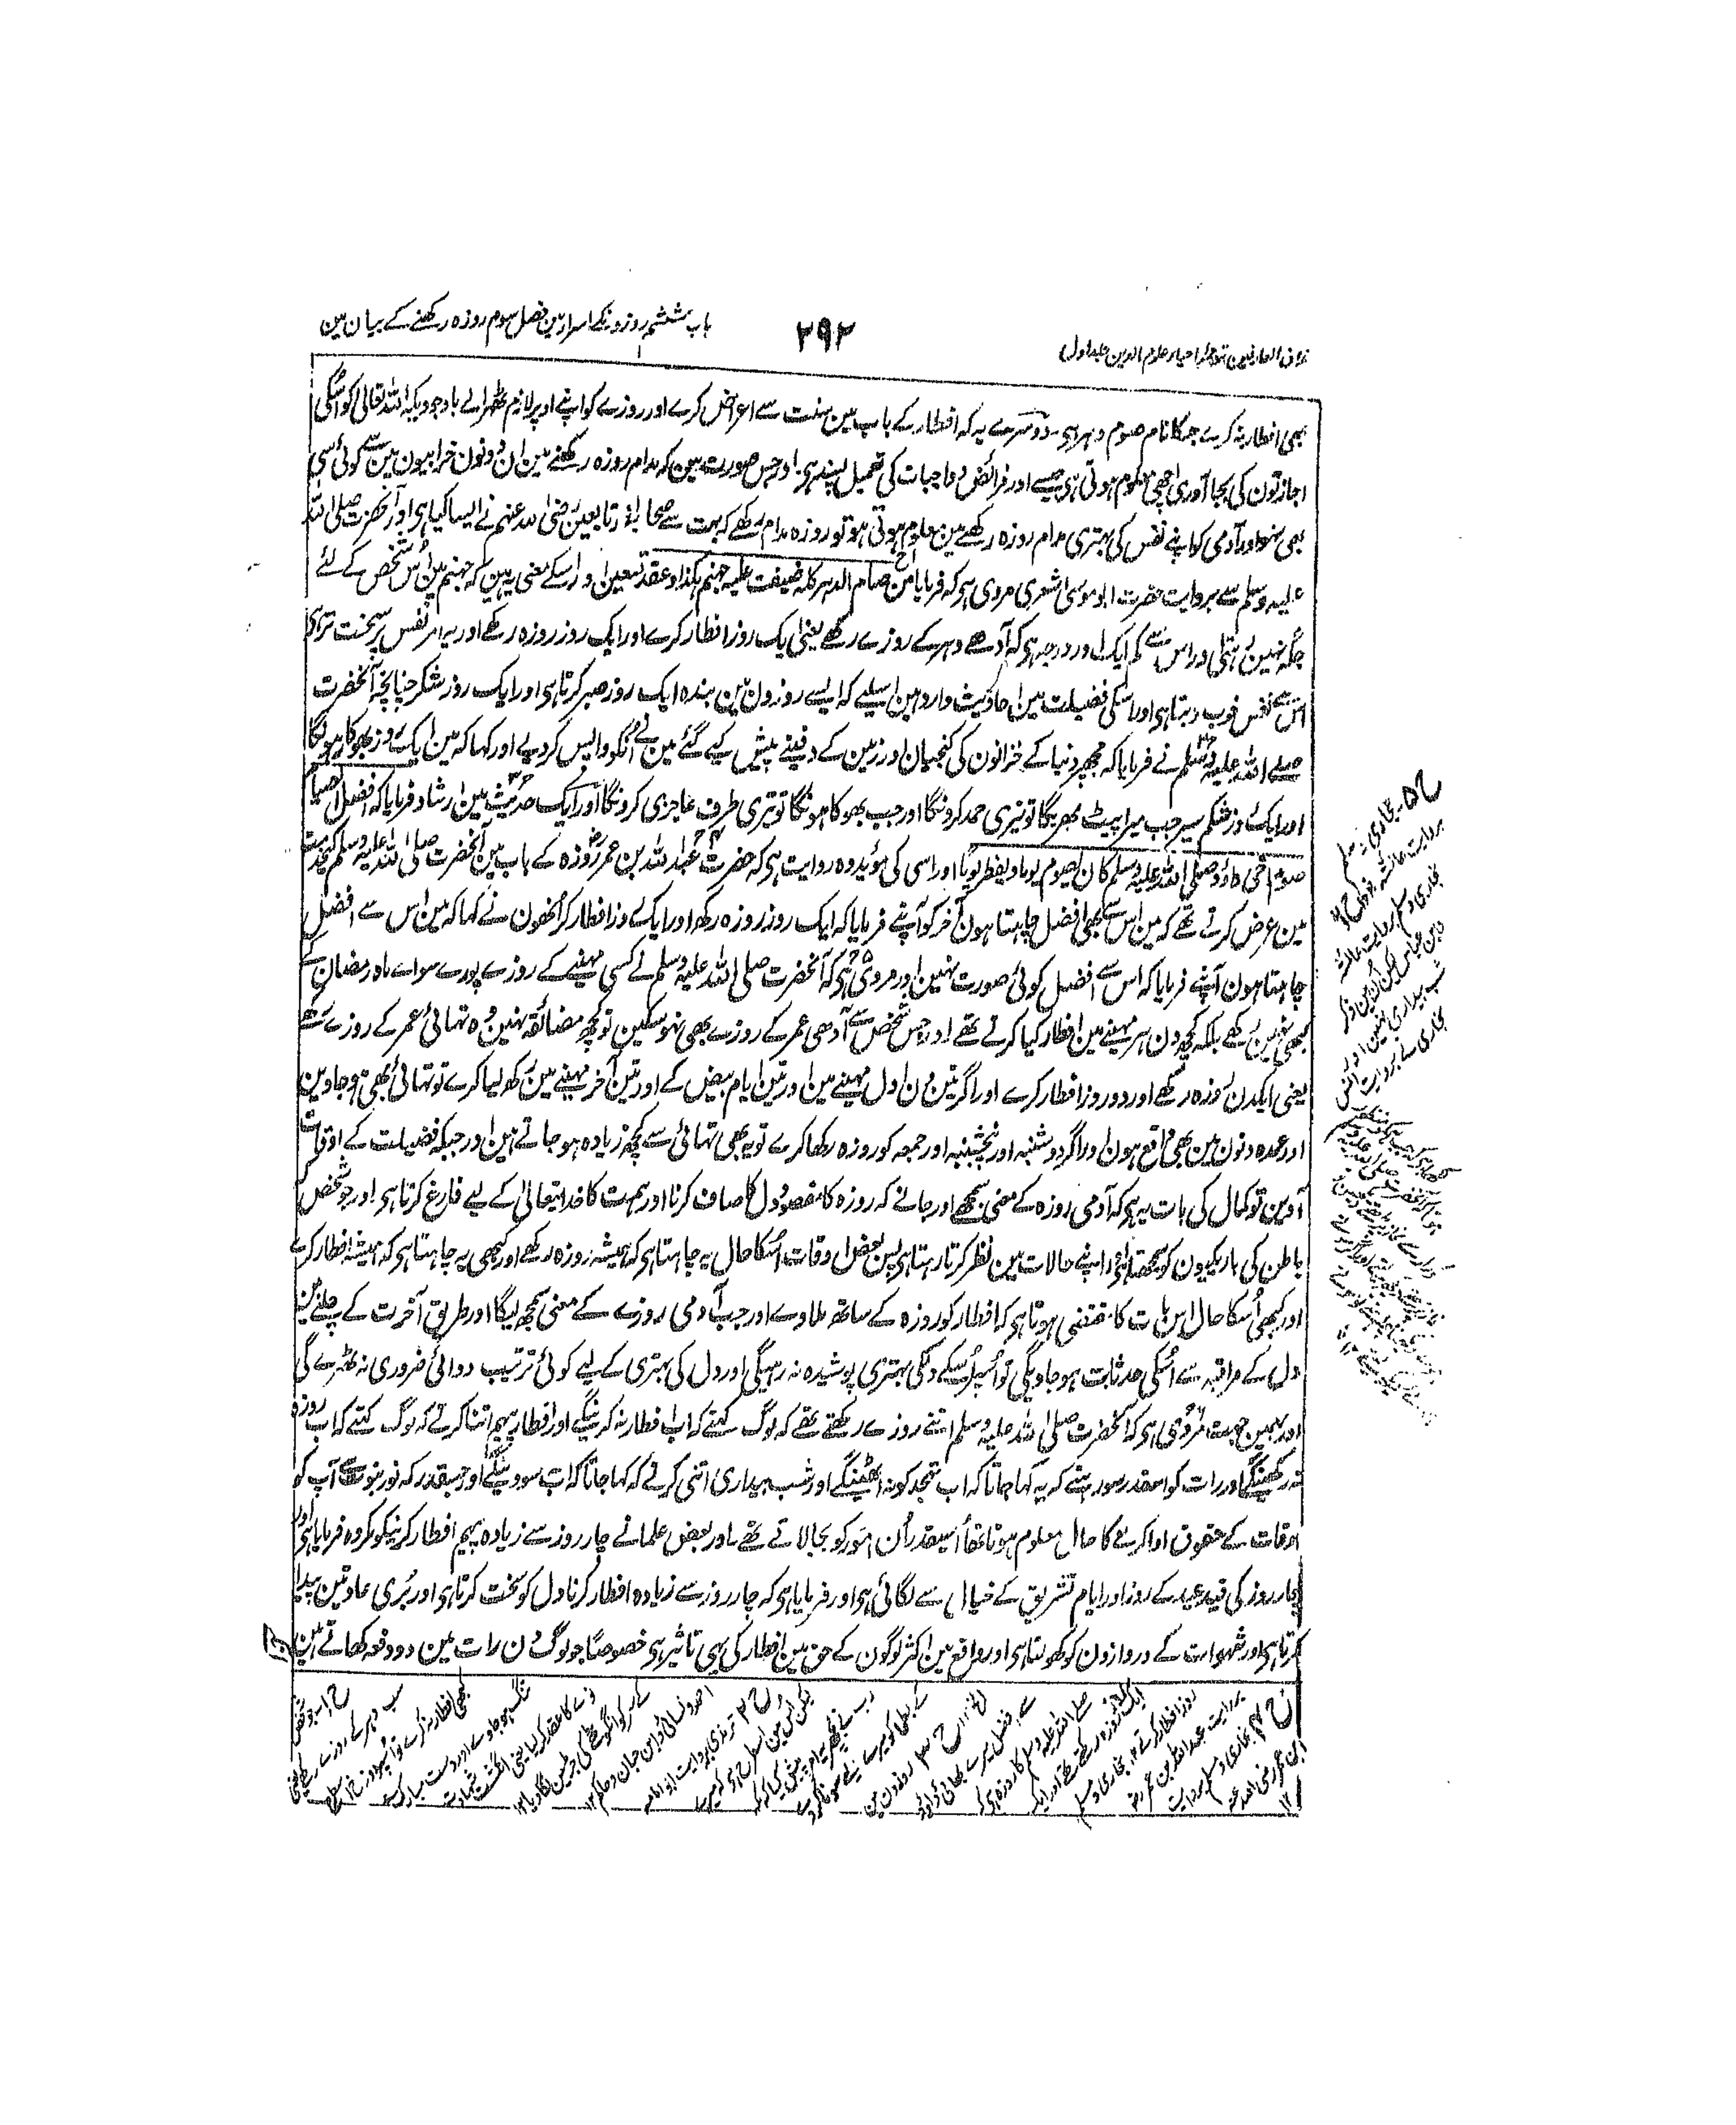 باب ششم روزونکے اسرار مین فصل سوم روزہ رکھنے کے بیان مین
۲۹۲
مذاق العارفین ترجمہ احیاء علوم الدین جلد اول
بھی افطار نہ کرے جسکا نام صوم دہر ہی۔ دوسرے یہ کہ افطار کے باب مین سنت سے اعراض کرے اور روزے کو اپنے اوپر لازم ٹھہرالے باوجودیکہ اللہ تعالیٰ کو اُسکی
اجازتون کی بجا آوری اچھی معلوم ہوتی ہی جیسے اور فرائض و واجبات کی تعمیل پسند ہی اور جس صورت مین کہ مدام روزہ رکھنے مین ان دونون خرابیون مین سے کوئی سی
بھی نہو اور آدمی کو اپنے نفس کی بہتری مدام روزہ رکھنے مین معلوم ہوتی ہو تو روزہ مدام رکھے کہ بہت سے صحابہ اور تابعین رضی اللہ عنہم نے ایسا کیا ہی اور آنحضرت صلی اللہ
علیہ وسلم سے بروایت حضرت ابو موسی اشعری مروی ہی کہ فرمایا من صام الدہر کلہ ضیقت علیہ جہنم ہکذا و عقد تسعین اور اسکے معنی یہ ہین کہ جہنم مین اُس شخص کے لئے
جگہ نہین رہتی اور اس سے کم ایک اور درجہ ہی کہ آدھے دہر کے روزے رکھے یعنی ایک روز افطار کرے اور ایک روز روزہ رکھے اور یہ امر نفس پر سخت تر ہی
اس سے نفس خوب دبتا ہی اور اسکی فضیلت مین احادیث وارد ہین اسلیے کہ ایسے روزون مین بندہ ایک روز صبر کرتا ہی اور ایک روز شکر چنانچہ آنحضرت
صلے اللہ علیہ وسلم نے فرمایا کہ مجھپر دنیا کے خزانون کی کنجیان اور زمین کے دفینے پیش کیے گئے مین نے اُنکو واپس کردیے اور کہا کہ مین ایک روز بھوکا رہونگا
اور ایک روز شکم سیر جب میرا پیٹ بھریگا تو تیری حمد کرونگا اور جب بھوکا ہونگا تو تیری طرف عاجزی کرونگا اور ایک حدیث مین ارشاد فرمایا کہ افضل الصیام
صوم اخی داؤد صلی اللہ علیہ وسلم کان یصوم یوما و یفطر یوما اور اسی کی مؤید وہ روایت ہی کہ حضرت عبد اللہ بن عمر رض روزہ کے باب مین آنحضرت صلی اللہ علیہ وسلم کی خدمت
مین عرض کرتے تھے کہ مین اس سے بھی افضل چاہتا ہون آخر کو آپنے فرمایا کہ ایک روز روزہ رکھ اور ایک روز افطار کر اُنھون نے کہا کہ مین اس سے افضل
چاہتا ہون آپنے فرمایا کہ اس سے افضل کوئی صورت نہین اور مروی ہی کہ آنحضرت صلی اللہ علیہ وسلم نے کسی مہینے کے روزے پورے سواے ماہ رمضان کے
کبھی نہین رکھے بلکہ کچھ دن ہر مہینے مین افطار کیا کرتے تھے اور جس شخص سے آدھی عمر کے روزے بھی نہوسکین تو کچھ مضائقہ نہین وہ تہائی عمر کے روزے رکھے
یعنی ایکدن روزہ رکھے اور دو روز افطار کرے اور اگر تین دن اول مہینے مین اور تین ایام بیض کے اور تین آخر مہینے مین رکھ لیا کرے تو تہائی بھی ہوجاوین
اور عمدہ دنون مین بھی واقع ہون اور اگر دوشنبہ اور پنجشنبہ اور جمعہ کو روزہ رکھا کرے تو یہ بھی تہائی سے کچھ زیادہ ہوجاتے ہین اور جبکہ فضیلت کے اوقات
آوین تو کمال کی بات یہ ہی کہ آدمی روزہ کے معنی سمجھے اور جانے کہ روزہ کا مقصود دل کا صاف کرنا اور ہمت کا خدایتعالیٰ کے لیے فارغ کرنا ہی اور جو شخص
باطن کی باریکیون کو سمجھتا ہی وہ اپنے حالات مین نظر کرتا رہتا ہی پس بعض اوقات اُسکا حال یہ چاہتا ہی کہ ہمیشہ روزہ رکھے اور کبھی یہ چاہتا ہی کہ ہمیشہ افطار کرے
اور کبھی اُسکا حال اس بات کا مقتضی ہوتا ہی کہ افطار کو روزہ کے ساتھ ملاوے اور جب آدمی روزے کے معنی سمجھ لیگا اور طریق آخرت کے چلنے مین
دل کے مراقبہ سے اُسکی حد ثابت ہوجاویگی تو اُسپر اُسکے دلکی بہتری پوشیدہ نہ رہیگی اور دل کی بہتری کے لیے کوئی ترتیب دوائی ضروری نہ ٹھہرے گی
اور بہمین جہت مروی ہی کہ آنحضرت صلی اللہ علیہ وسلم اتنے روزے رکھتے تھے کہ لوگ کہتے کہ اب افطار نہ کرینگے اور افطار پیہم اتنا کرتے کہ لوگ کہتے کہ اب روزہ
نہ رکھینگے اور رات کو اسقدر سو رہتے کہ یہ کہا جاتا کہ اب تہجد کو نہ اُٹھینگے اور شب بیداری اتنی کرتے کہ کہا جاتا کہ اب نہ سووینگے اور جسقدر کہ نور نبوت سے آپ کو
اوقات کے حقوق ادا کرنے کا حال معلوم ہوتا تھا اُسیقدر اُن امور کو بجالاتے تھے۔ اور بعض علما نے چار روز سے زیادہ پیہم افطار کرنیکو مکروہ فرمایا ہی اور
چار روز کی قید عید کے روز اور ایام تشریق کے خیال سے لگائی ہی اور فرمایا ہی کہ چار روز سے زیادہ افطار کرنا دل کو سخت کرتا ہی اور بُری عادتین پیدا
کرتا ہی اور شہوات کے دروازون کو کھولتا ہی اور واقع مین اکثر لوگون کے حق مین افطار کی یہی تاثیر ہی خصوصًا جو لوگ دن رات مین دو دفعہ کھاتے ہین
ح ۵ بخاری و مسلم
بروایت عائشہ
بخاری و مسلم بروایت عائشہ
و ابن عباس
شب بیداری نہین اور
بخاری نے بروایت انس
ح ۴ بخاری و مسلم بروایت
ابن عمر رضی اللہ عنہ
بروایت عبد اللہ بن عمر رض
روز افطار کرتے ۱۲
ایک روز روزہ رکھتے تھے اور ایک
صلے اللہ علیہ وسلم کا روزہ ہی کہ
سے افضل میرے بھائی داؤد
ح ۲ ترمذی بروایت ابو امامہ
احمد و نسائی و ابن حبان و حاکم ۱۲